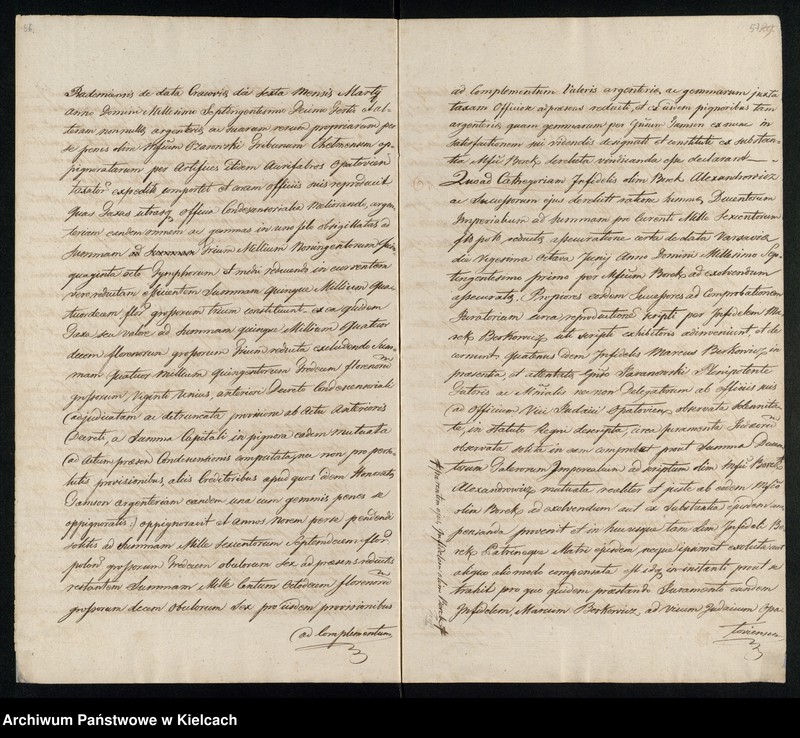 56.
Radomiensis de data Cracoviæ die sexta Mensis Martij
Anno Domini Millesimo Septingentesimo Decimo Tertio et al-
teram non nullæ argenteriæ ac suarum rerum propriarum per
se penes olim Mfcum Ozarowski Tribunum Chelmensem op-
pignoratarum per Artifices Item Aurifabros Opatovien
taxator expediti comportet et coram officiis suis reproducit
Quas Taxas utrasq officia Condescensorialia notirando, argen-
teriam eandem omnem ac gemmas in uno filo obrigillatas ad
Summam ad Summam Trium Millium Noningentorum Quin-
quaginta octo Tynphorum et medii rehuendo in currentem
vero reductam efficientem Summam Quinque Millium Qua-
tuordecim flor. grosporum trium constituunt. ex ea quidem
Taxa seu valore ad Summam quinque Millium Quatuor
decem florenorum grosporum Trium reducta excludendo Sum-
mam Quatuor Millium Quingentorum Tredecim florenorum
grosporum Viginti Unius, anteriori Decreto Condescensoriali
(adjudicatam ac detruncata provisione ab Actu Anterioris
Decreti, a Summa Capitali in pignora eadem mutuata
(ad Actum præsen Condescensionis computata, nec non pro por-
tatis provisionibus, aliis Creditoribus apud quos idem Honoratus
Jamson argenteriam eandem una cum gemmis penes se
oppignoratis) oppignoravit et annos Novem per se pendendi
solitis ad Summam Mille Sexcentorum Septendecim flor.
poton grosporum Tredecim obulorum Sex ad præsens reductis
restantem Summam Mille Centum Octodecim florenorum
grosporum decem obulorum Sex pro iisdem provisionibus
(ad Complementum
ad Complementum Valoris argenteriæ ac gemmarum juxta
taxam Officiose ad præsens reducti, et Eundem pignoribus tam
argenteriæ quam gemmarum per Gnum Jamson ex nunc in
satisfactionem sui videndis designati et constituti ex substan-
tia Mfci Borek derelicta vindicanda esse declarant.
Quoad Cathegoriam Infidelis olim Borek Alexandrowicz
ac Successorum ejus derelicti ratione Summæ Ducentorum
Imperialium ad Summam pro currenti Mille Sexcentorum
fl. pol. reductæ assecuratione certa de data Varsaviæ
die Vigesima Octava Junij Anno Domini Millesimo Sep-
tingentesimo primo per Mficum Borek ad exolvendum
assecuratæ. Propiores eosdem Successores ad Comprobationem
Juratoriam circa reproductionem Scripti per Infidelem Mar-
rek Berkowicz uti scripti exhibitoris adinveniunt et de
cernunt. Quatinus idem Infidelis Marcus Berkowicz, in
præsentia, et attentata Gnso Taranowski Plenipotente
Actoris ac Mnrialis nec non Delegatorum ab Officiis suis
(ad Officium Vice Judaici Opatovien. observata Solennita-
te, in Statuto Regni descripta, circa juramenta Judæorum
observata solita in eam comprobet prout Summa Ducen-
torum Talerorum Imperialium ad Scriptum olim Mfci Borek
Alexandrowicz mutuata realiter et juste ab eodem Mfico
olim Borek, ad exolvendum aut ex Substantia ejusdem com-
pensanda provenit et in hucusque tam dum Infideli Bo-
rek Patrinequa Matri ejusdem, necque ipsamet exoluta aut
aliquo alio modo compensata est idq in instanti prout se
tradit pro quo quidem præstando Juramento eundem
Infidelem, Marcum Berkowicz, ad vicem Judaicum Opa-
toviensem
Archiwum Państwowe w Kielcach